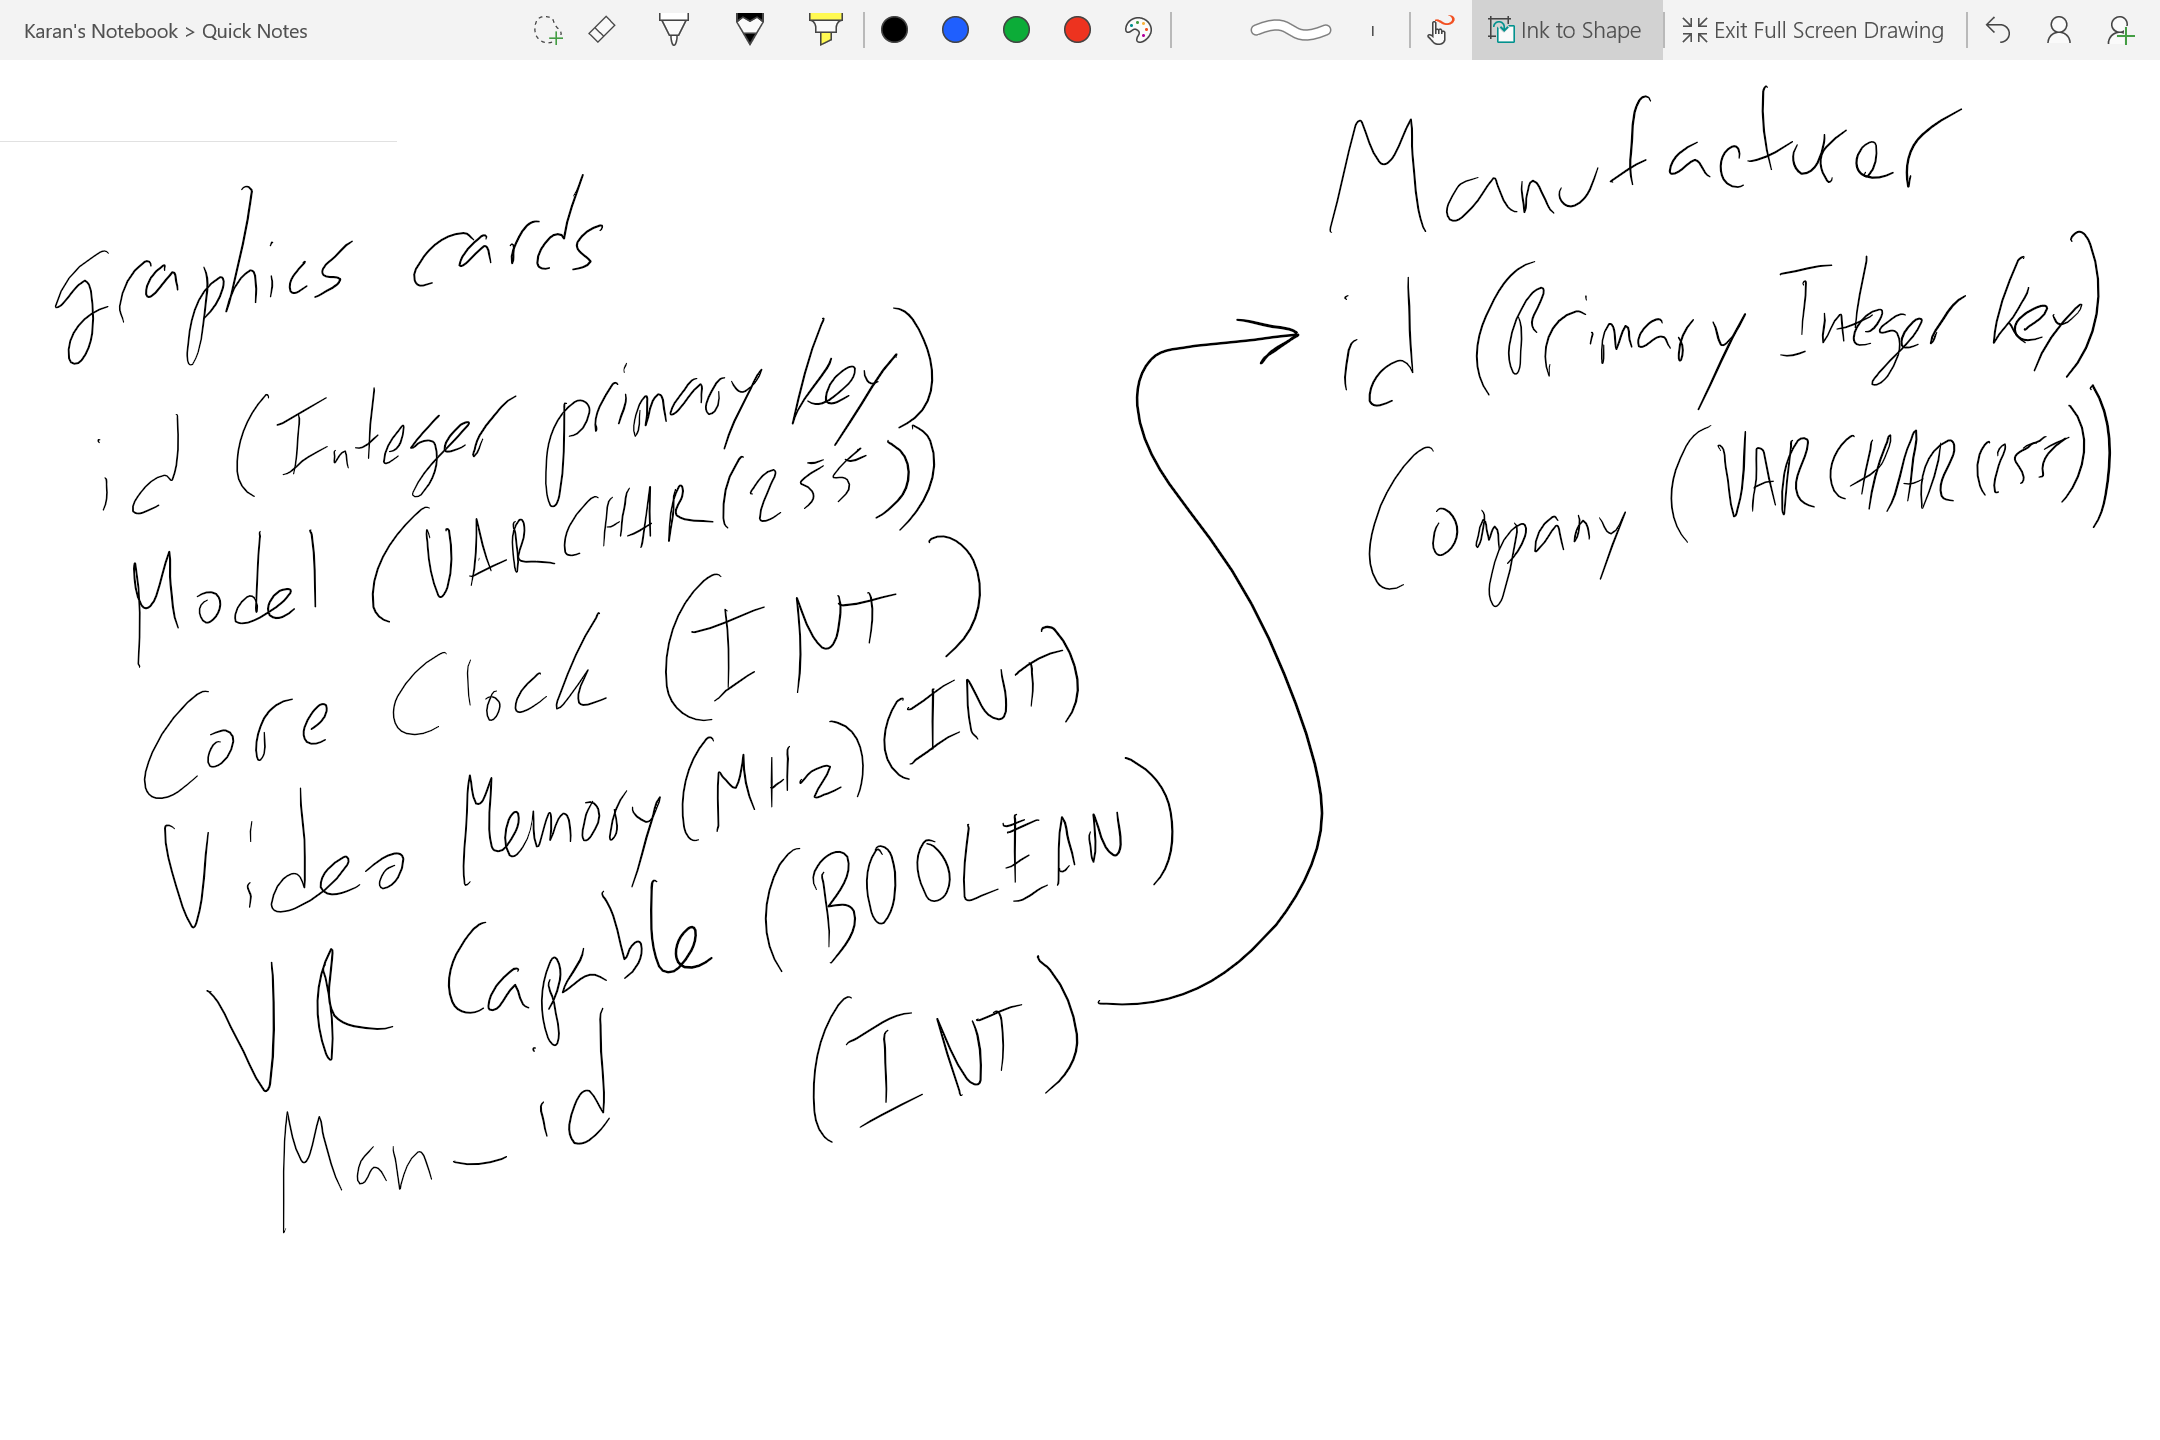 Karan's Notebook > Quick Notes
Ink to Shape
Exit Full Screen Drawing
graphics cards
id (Integer primary key)
Model (VARCHAR(255))
Core Clock (INT)
Video Memory(MHz)(INT)
VR Capable (BOOLEAN)
Man_id (INT)
Manufacturer
id (Primary Integer key)
Company (VARCHAR(255))